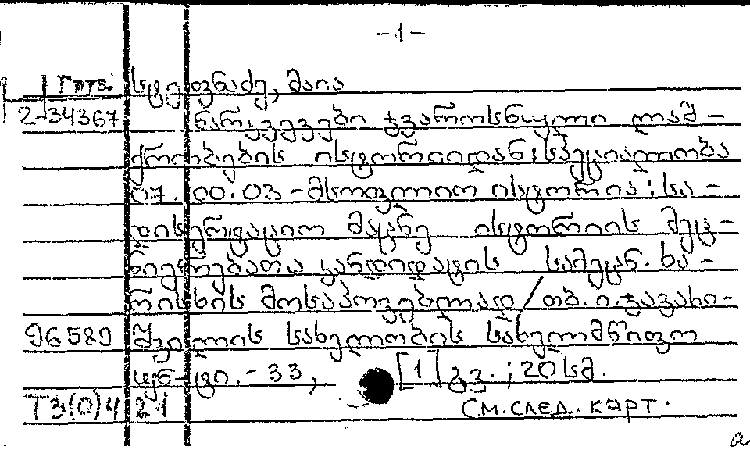 -1-
სტეფნაძე, მაია
2-34367 ნარკვევები ჯვაროსნული ლაშ-
ქრობების ისტორიიდან: სპეციალობა
07.00.03 - მსოფლიო ისტორია: სა-
დისერტაციო მაცნე ისტორიის მეც-
ნიერებათა კანდიდატის სამეცნ. ხა-
რისხის მოსაპოვებლად / თბ. ი. ჯავახი-
96589 შვილის სახელობის სახელმწიფო
უნ-ტი. - 33, [1] გვ.; 20 სმ.
T3(0)4 21 См. след. карт.